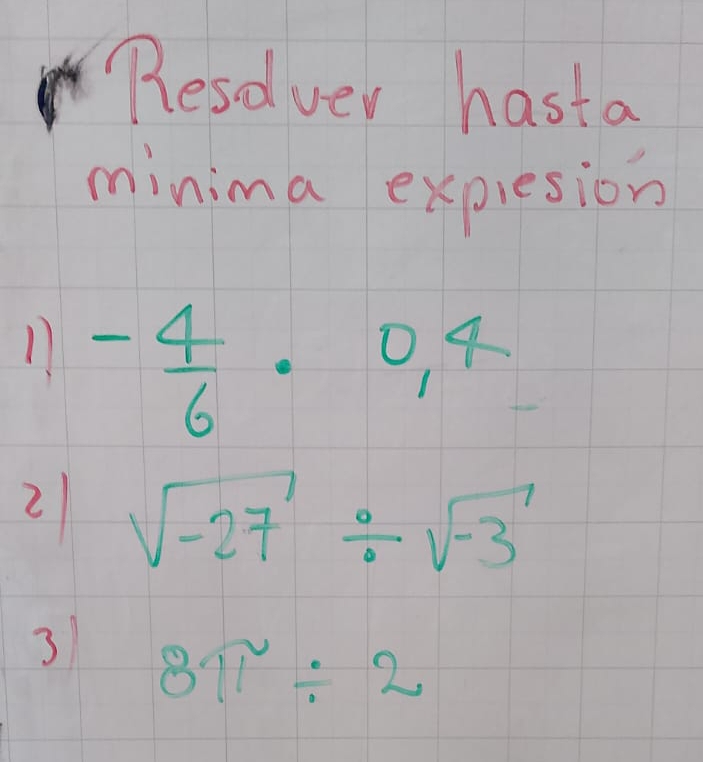 Resolver hasta
mínima expresión
1) - 4/6 · 0,4
2) √-27 ÷ √-3
3) 8π ÷ 2